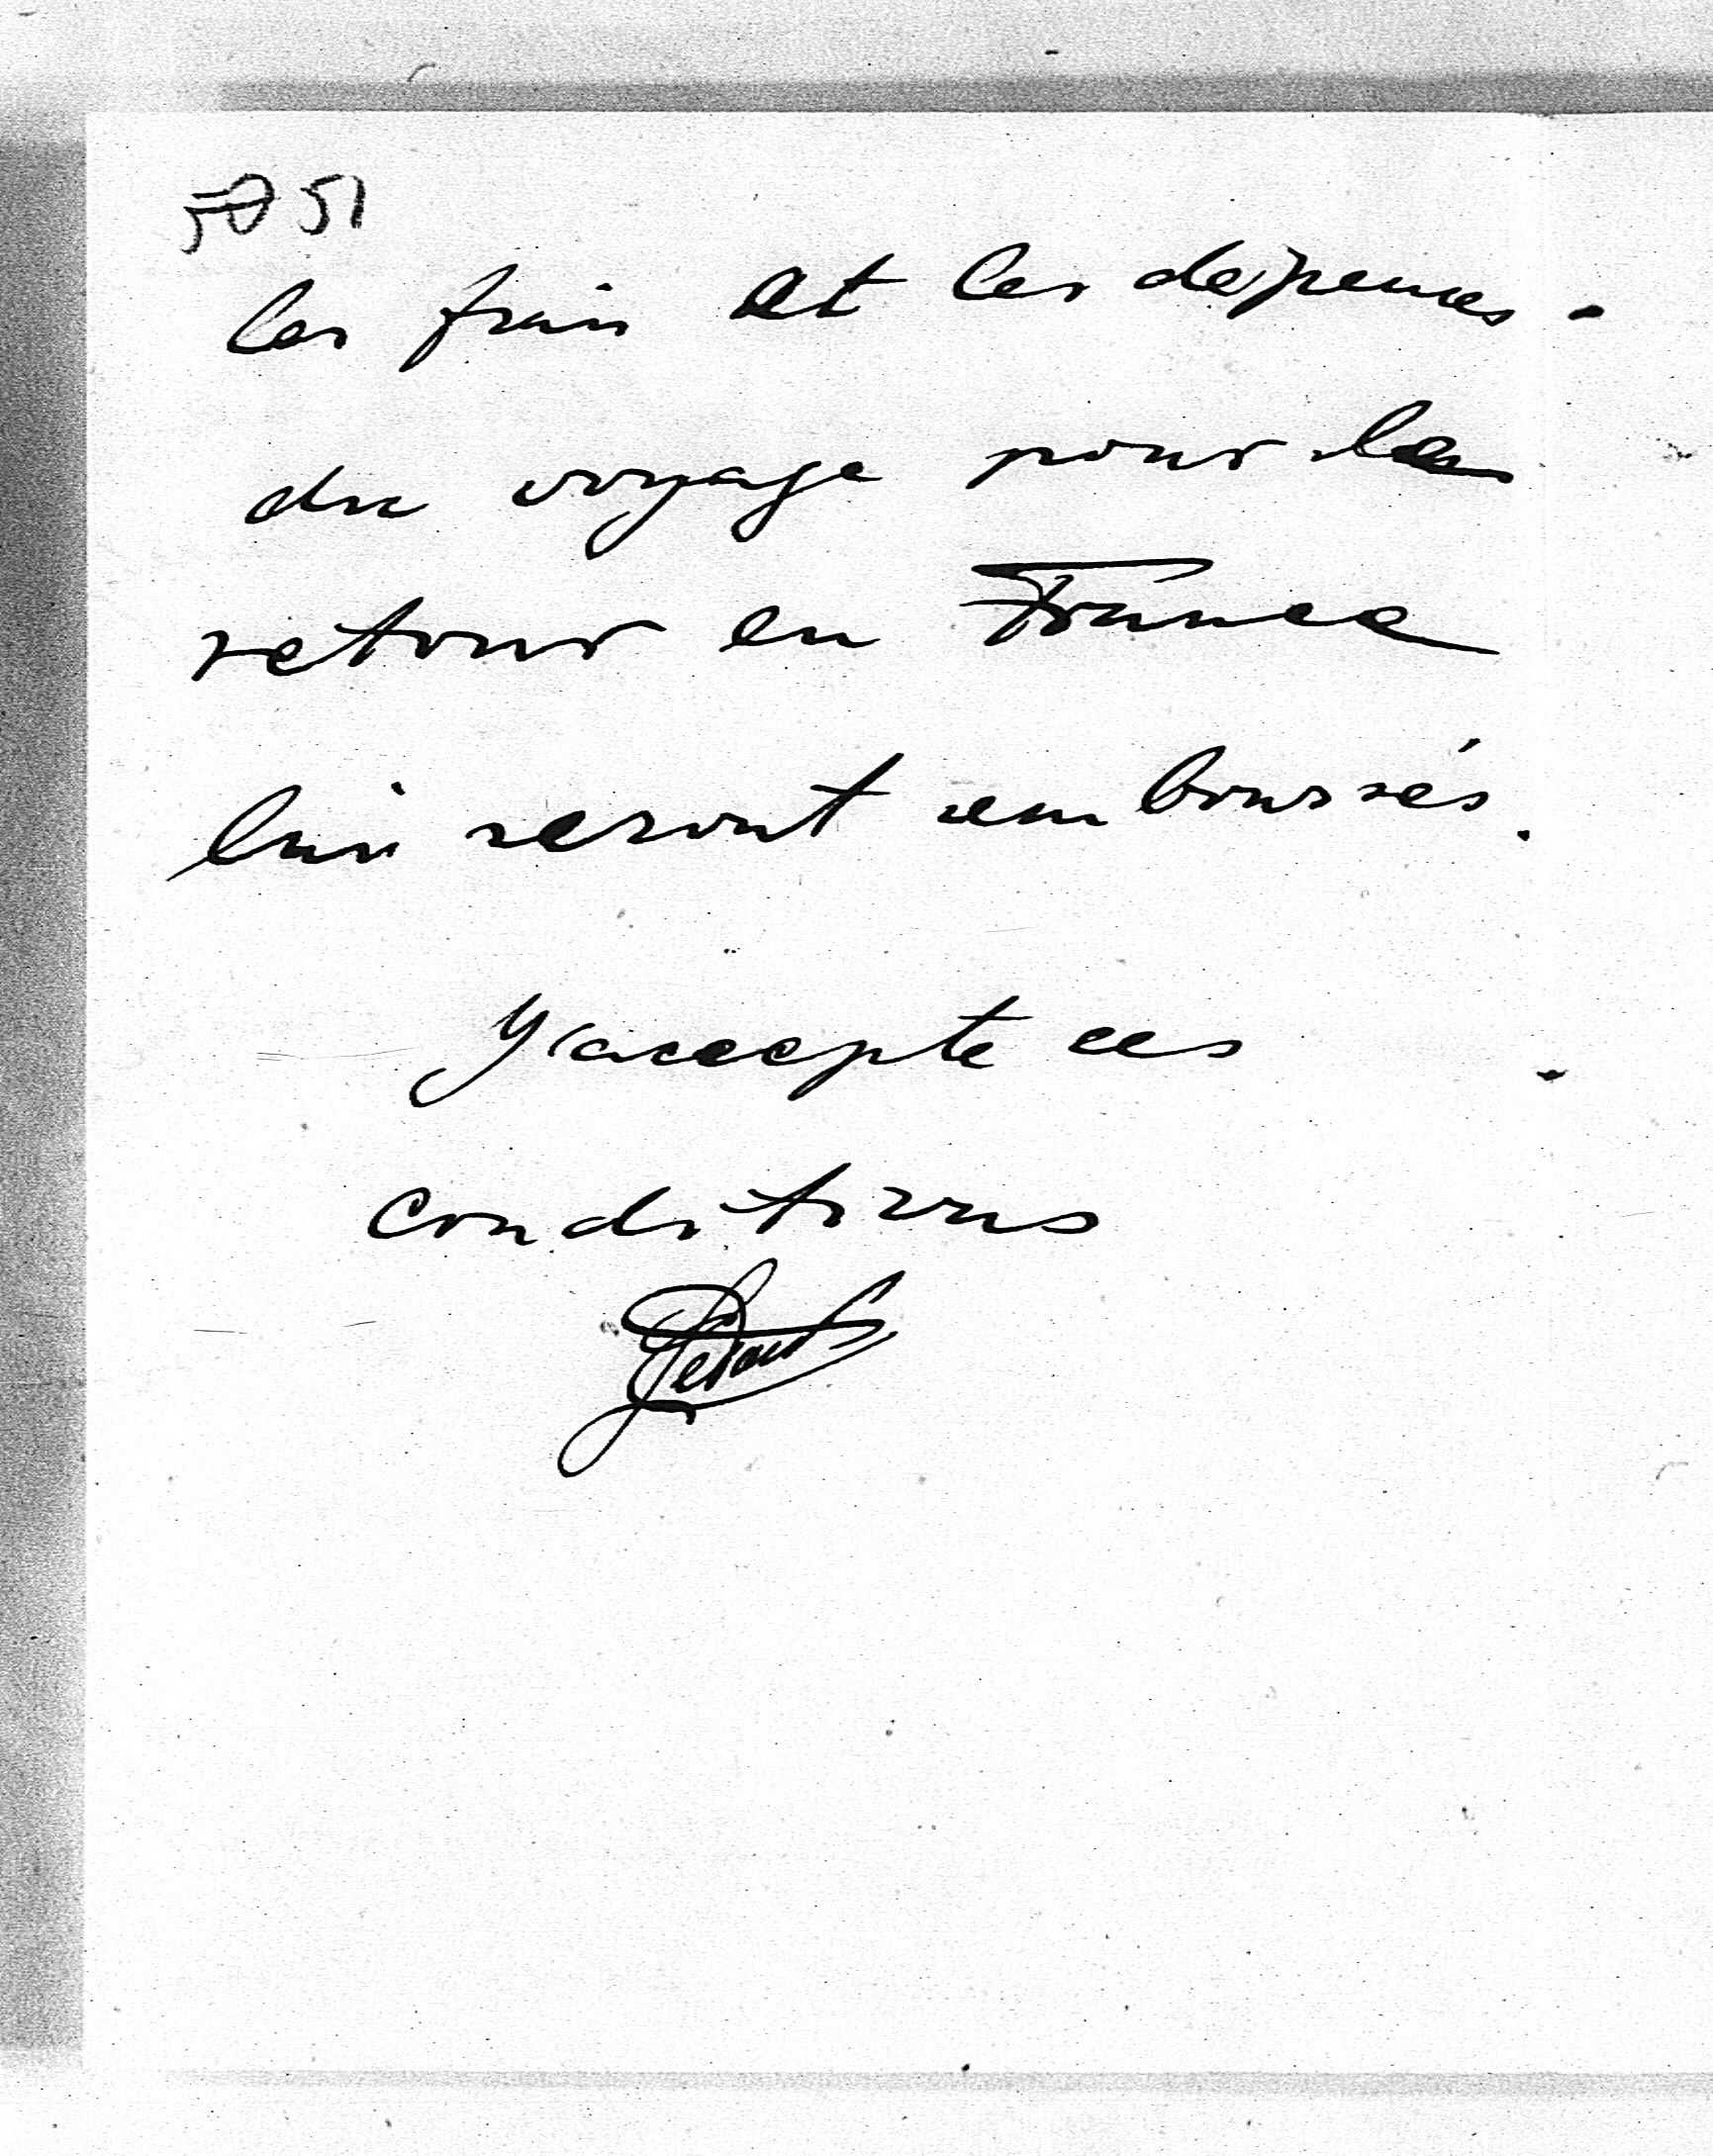 50 51
les frais et les depenses
du voyage pour le
retour en France
lui seront remboursés.
J'accepte ces
conditions